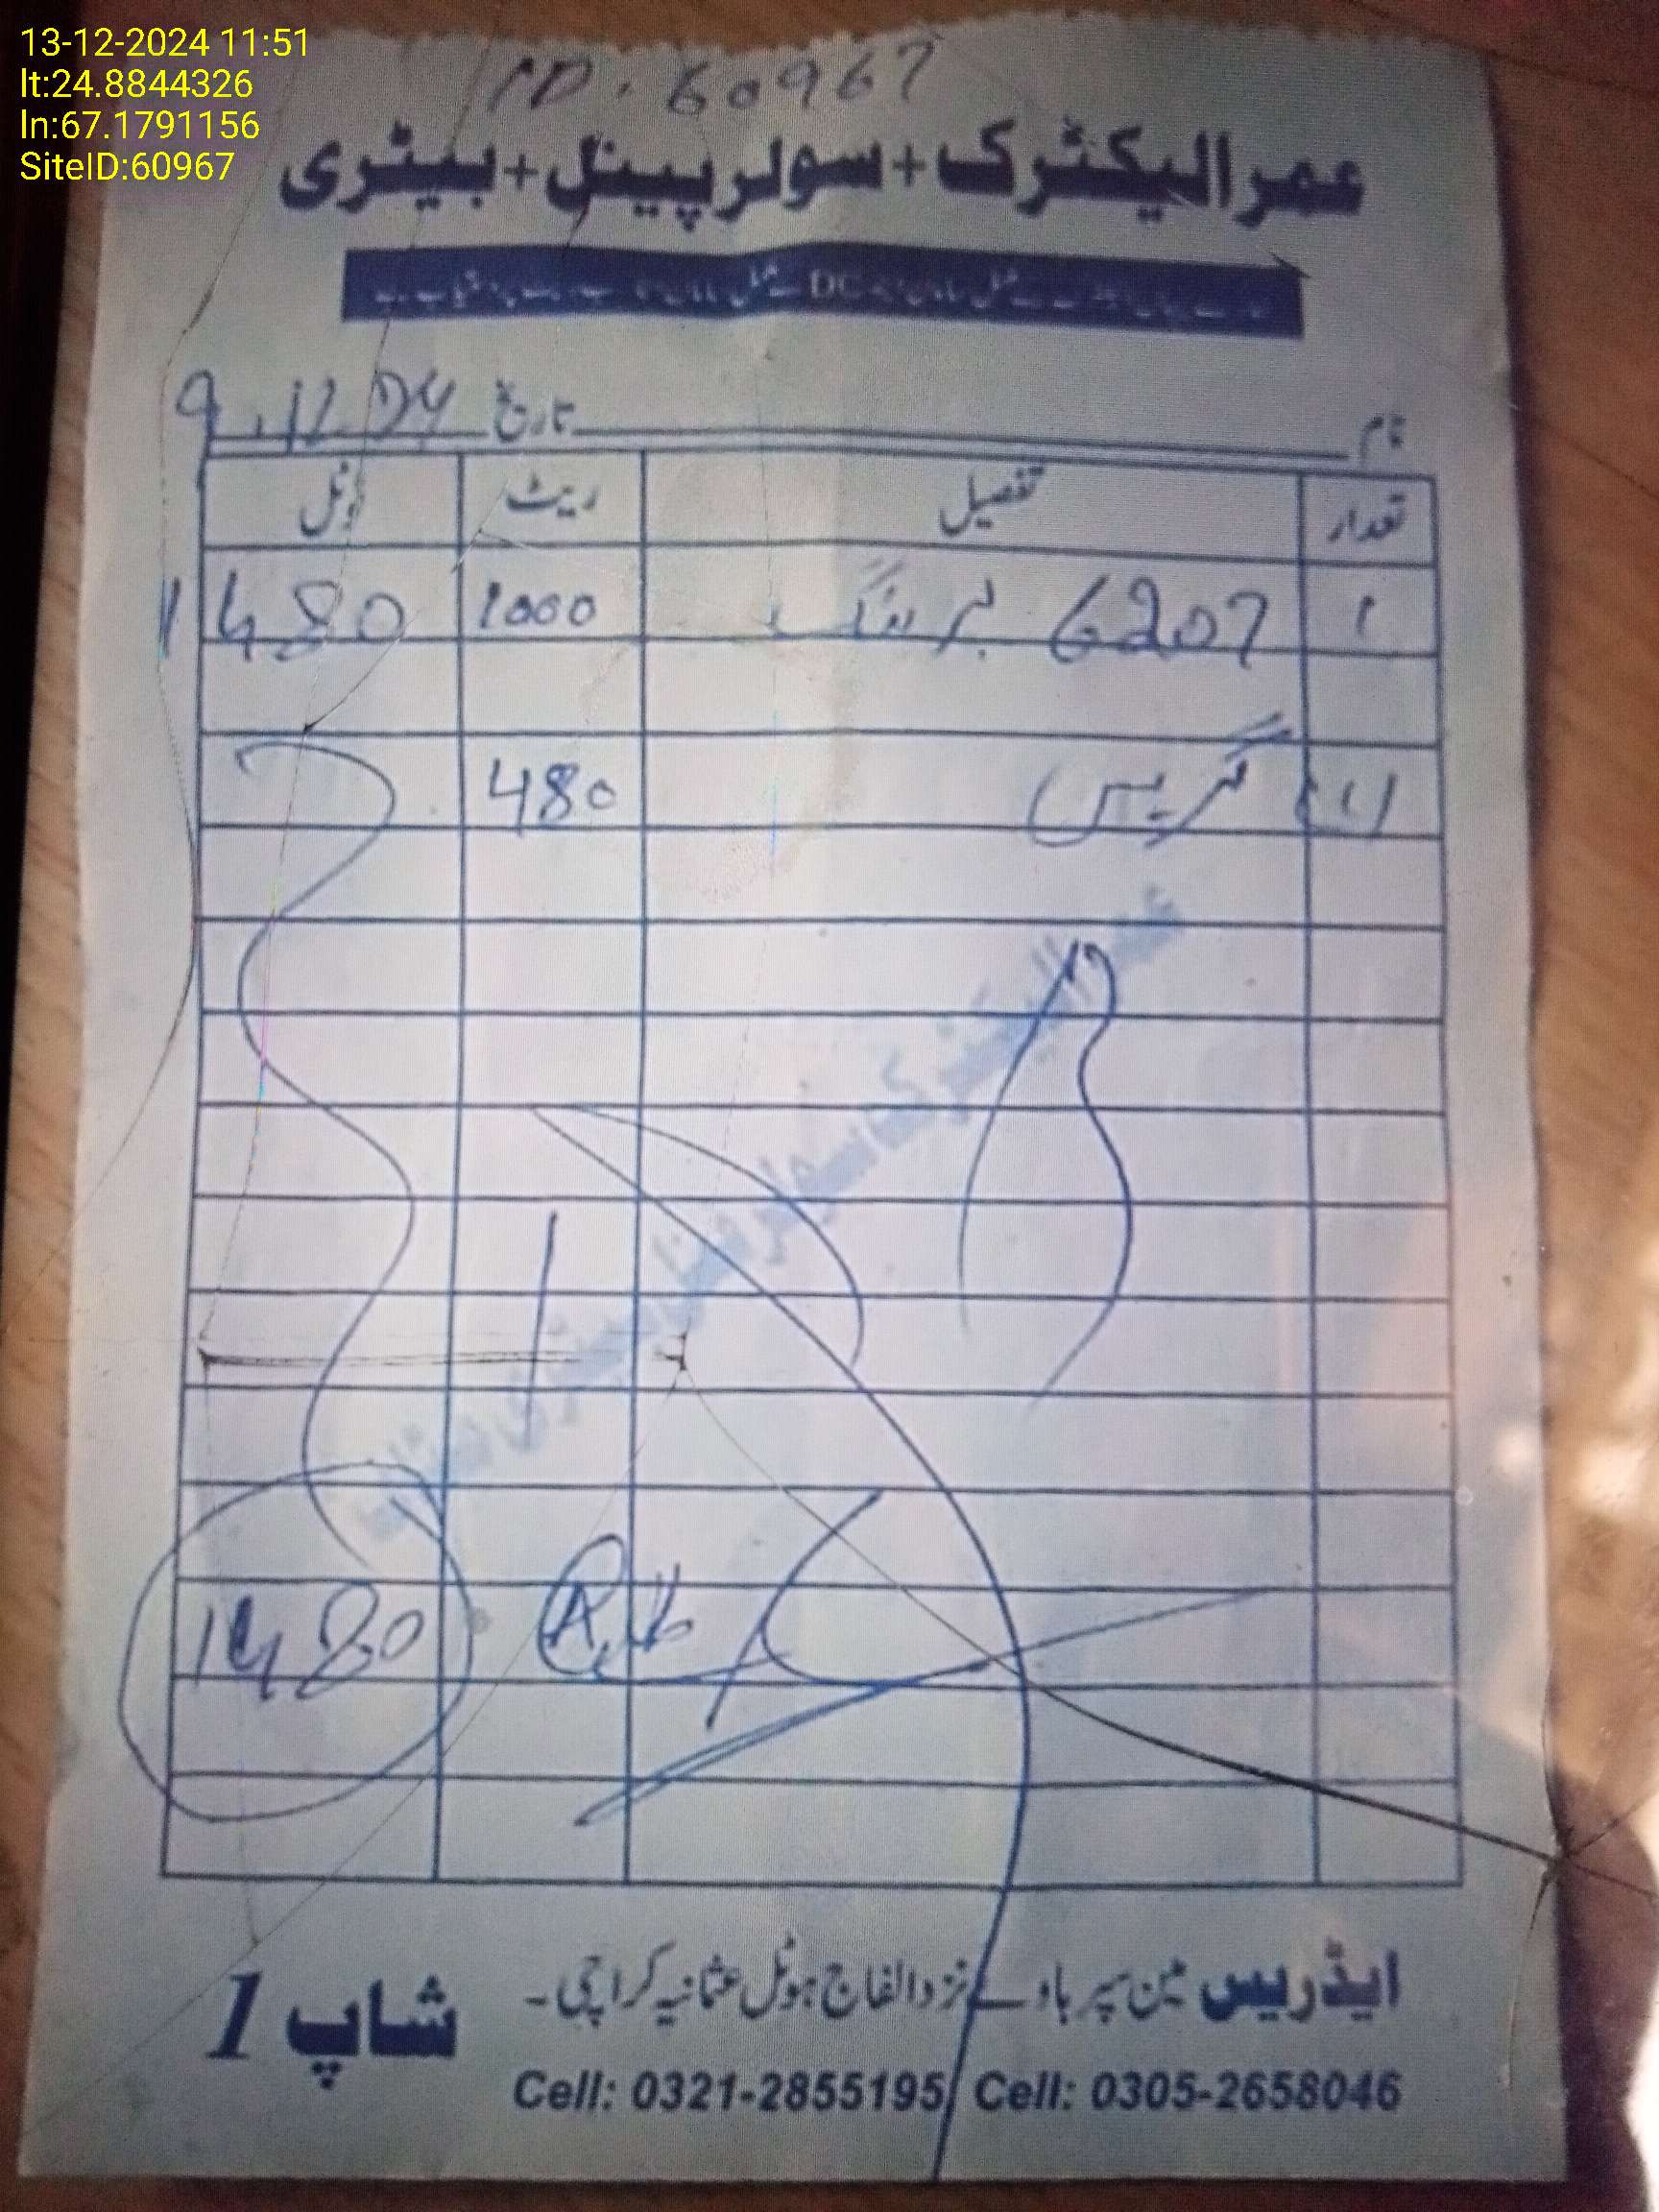 13-12-2024 11:51
lt:24.8844326
ln:67.1791156
SiteID:60967
ID. 60967
عمر الیکٹرک+سولر پینل+بیٹری
نام تاریخ 9.12.24
تعداد تفصیل ریٹ ٹوٹل
1 6207 بیرنگ 1000 1480
(1) گریس 480
1480
ایڈریس مین سپر ہاوے نزد الفلاح ہوٹل عثمانیہ کراچی۔
شاپ 1
Cell: 0321-2855195/ Cell: 0305-2658046